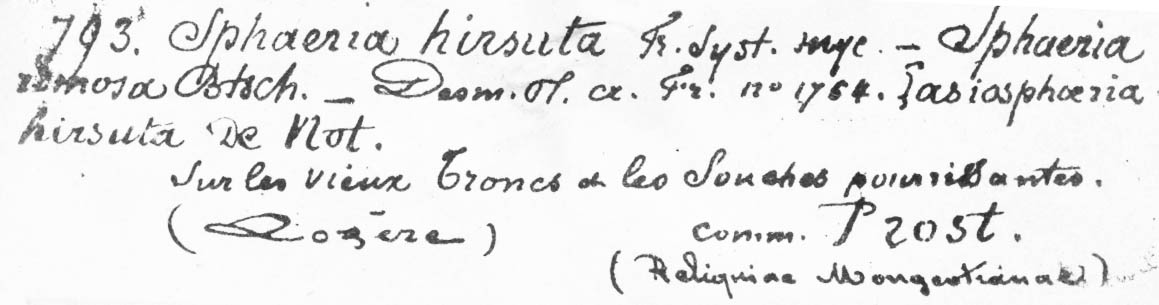 793. Sphaeria hirsuta Fr. Syst. myc. – Sphaeria
rimosa Btsch. – Desm. Pl. cr. Fr. no 1764. Lasiosphæria
hirsuta De Not.
Sur les vieux Troncs & les Souches pourrissantes.
(Lozère) comm. Prost.
(Reliquiae Mougeotianae)